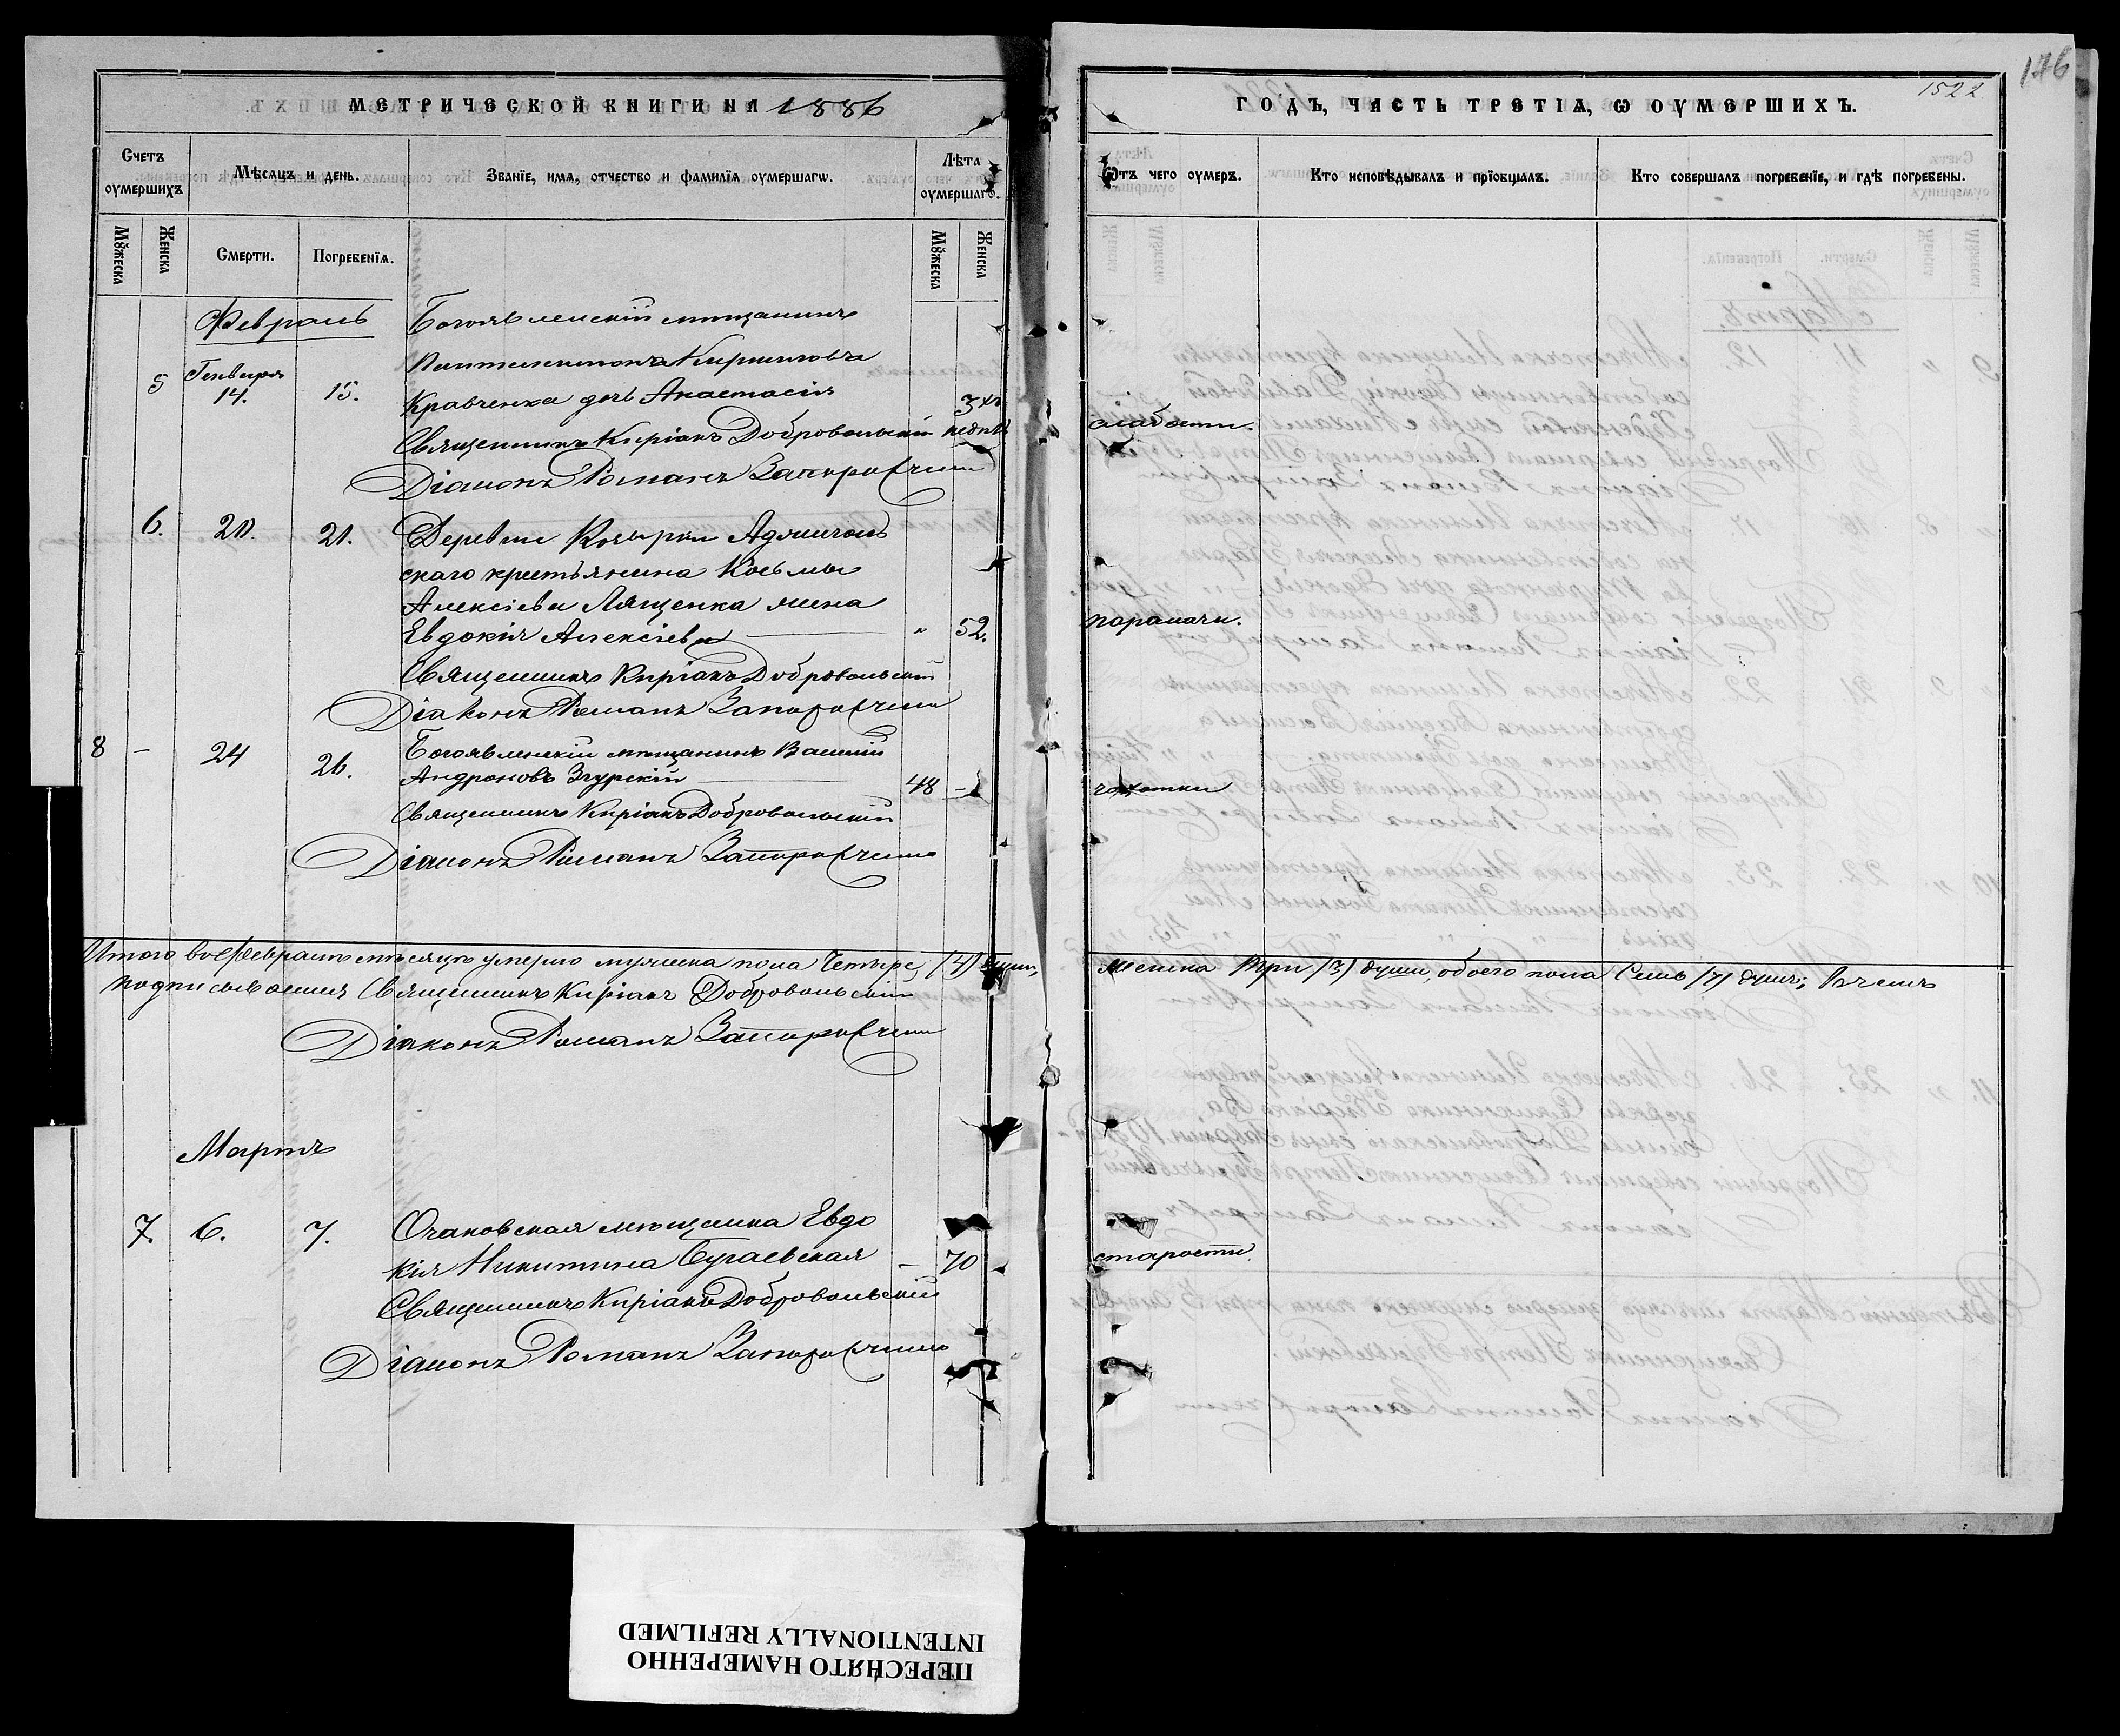 МЕТРИЧЕСКОЙ КНИГИ НА 1886
Счетъ оумершихъ
Мѣсяцъ и день.
Званїе, имя, отчество и фамилїя оумершагѡ.
Лѣта оумершагѡ.
Мꙋжеска
Женска
Смерти.
Погребенїя.
Мꙋжеска
Женска
Февраль
Богоявленскій мѣщанинъ
Пантелеимонъ Кирилловъ
5 Генваря 14. 15. Кравченка дочь Анастасія 3хъ
Священникъ Киріакъ Добровольскій недѣль
Діаконъ Романъ Запоровченко
6. 20. 21. Деревни Козырки Аджиголь
скаго крестьянина Косьмы
Алексіева Лященка жена
Евдокія Алексіева " 52.
Священникъ Киріакъ Добровольскій
Діаконъ Романъ Запоровченко
8 - 24 26. Богоявленскій мѣщанинъ Василій
Андроновъ Згурскій 48 -
Священникъ Киріакъ Добровольскій
Діаконъ Романъ Запоровченко
Итого во Февралѣ мѣсяцѣ умерло мужеска пола Четыре, (4) души,
подписываемся Священникъ Киріакъ Добровольскій
Діаконъ Романъ Запоровченко
Мартъ
7. 6. 7. Очаковская мѣщанка Евдо
кія Никитина Бугаевская - 70
Священникъ Киріакъ Добровольскій
Діаконъ Романъ Запоровченко
146
1522
ГОДЪ, ЧАСТЬ ТРЕТІЯ, Ѡ ОУМЕРШИХЪ.
Ѿтъ чего оумеръ.
Кто исповѣдывалъ и прїобщалъ.
Кто совершалъ погребенїе, и гдѣ погребены.
слабости.
чахотки
женска три (3) души, обоего пола Семь (7) душъ; въ чемъ
старости.
ПЕРЕСНЯТО НАМЕРЕННО
INTENTIONALLY REFILMED